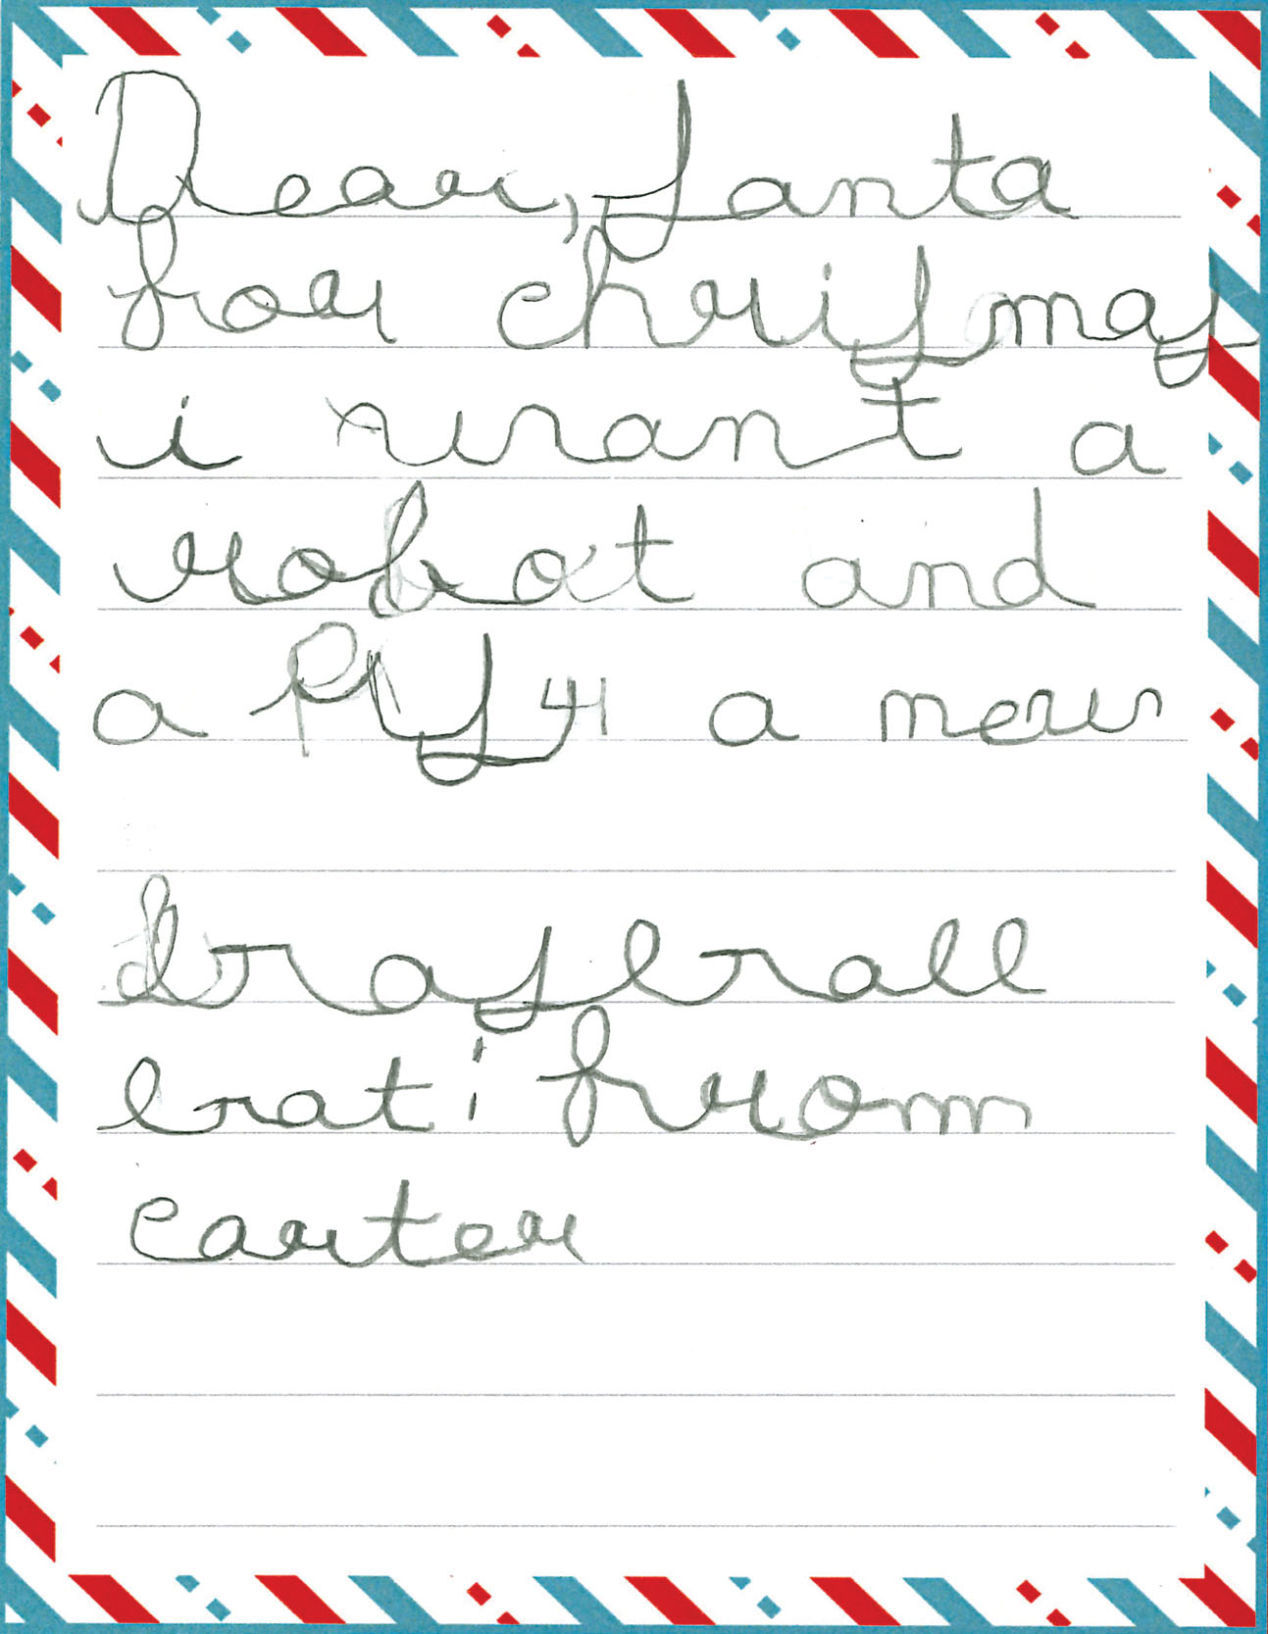 Dear, Santa
for chrismas
i want a
robot and
a PS4 a new
basball
bat! from
carter